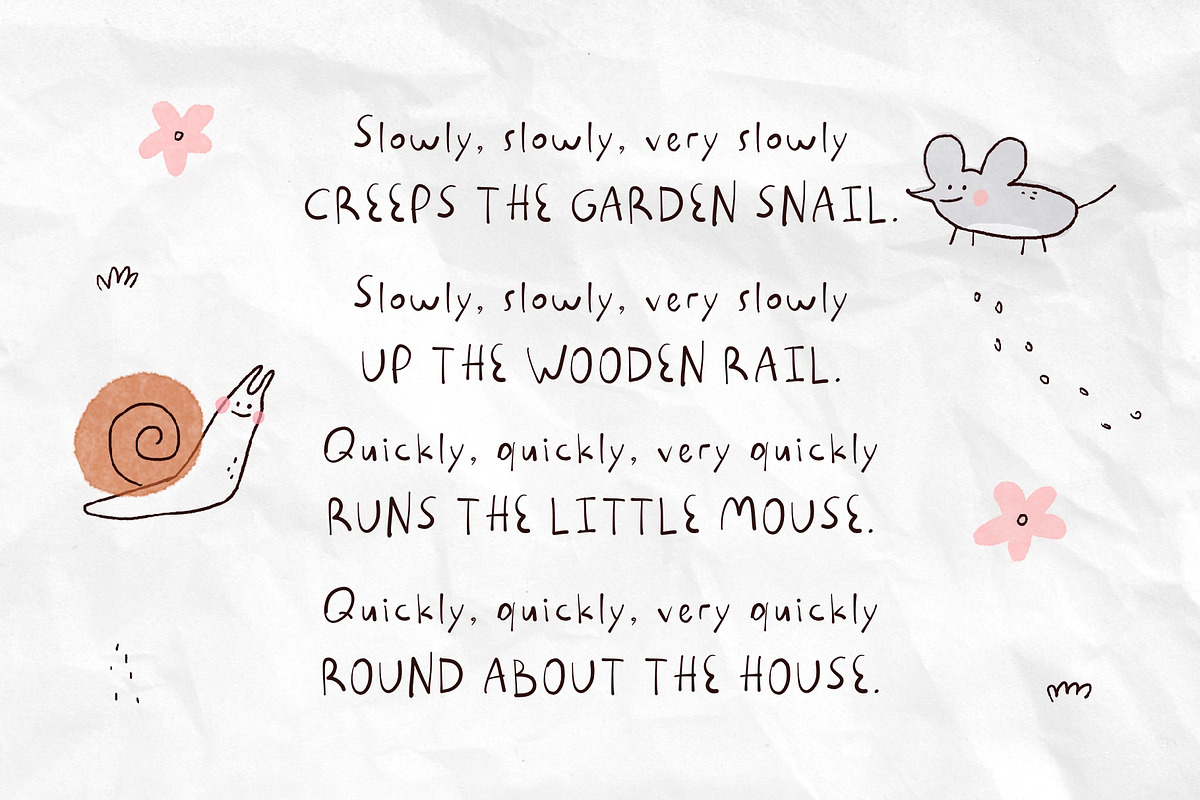 Slowly, slowly, very slowly
CREEPS THE GARDEN SNAIL.
Slowly, slowly, very slowly
UP THE WOODEN RAIL.
Quickly, quickly, very quickly
RUNS THE LITTLE MOUSE.
Quickly, quickly, very quickly
ROUND ABOUT THE HOUSE.